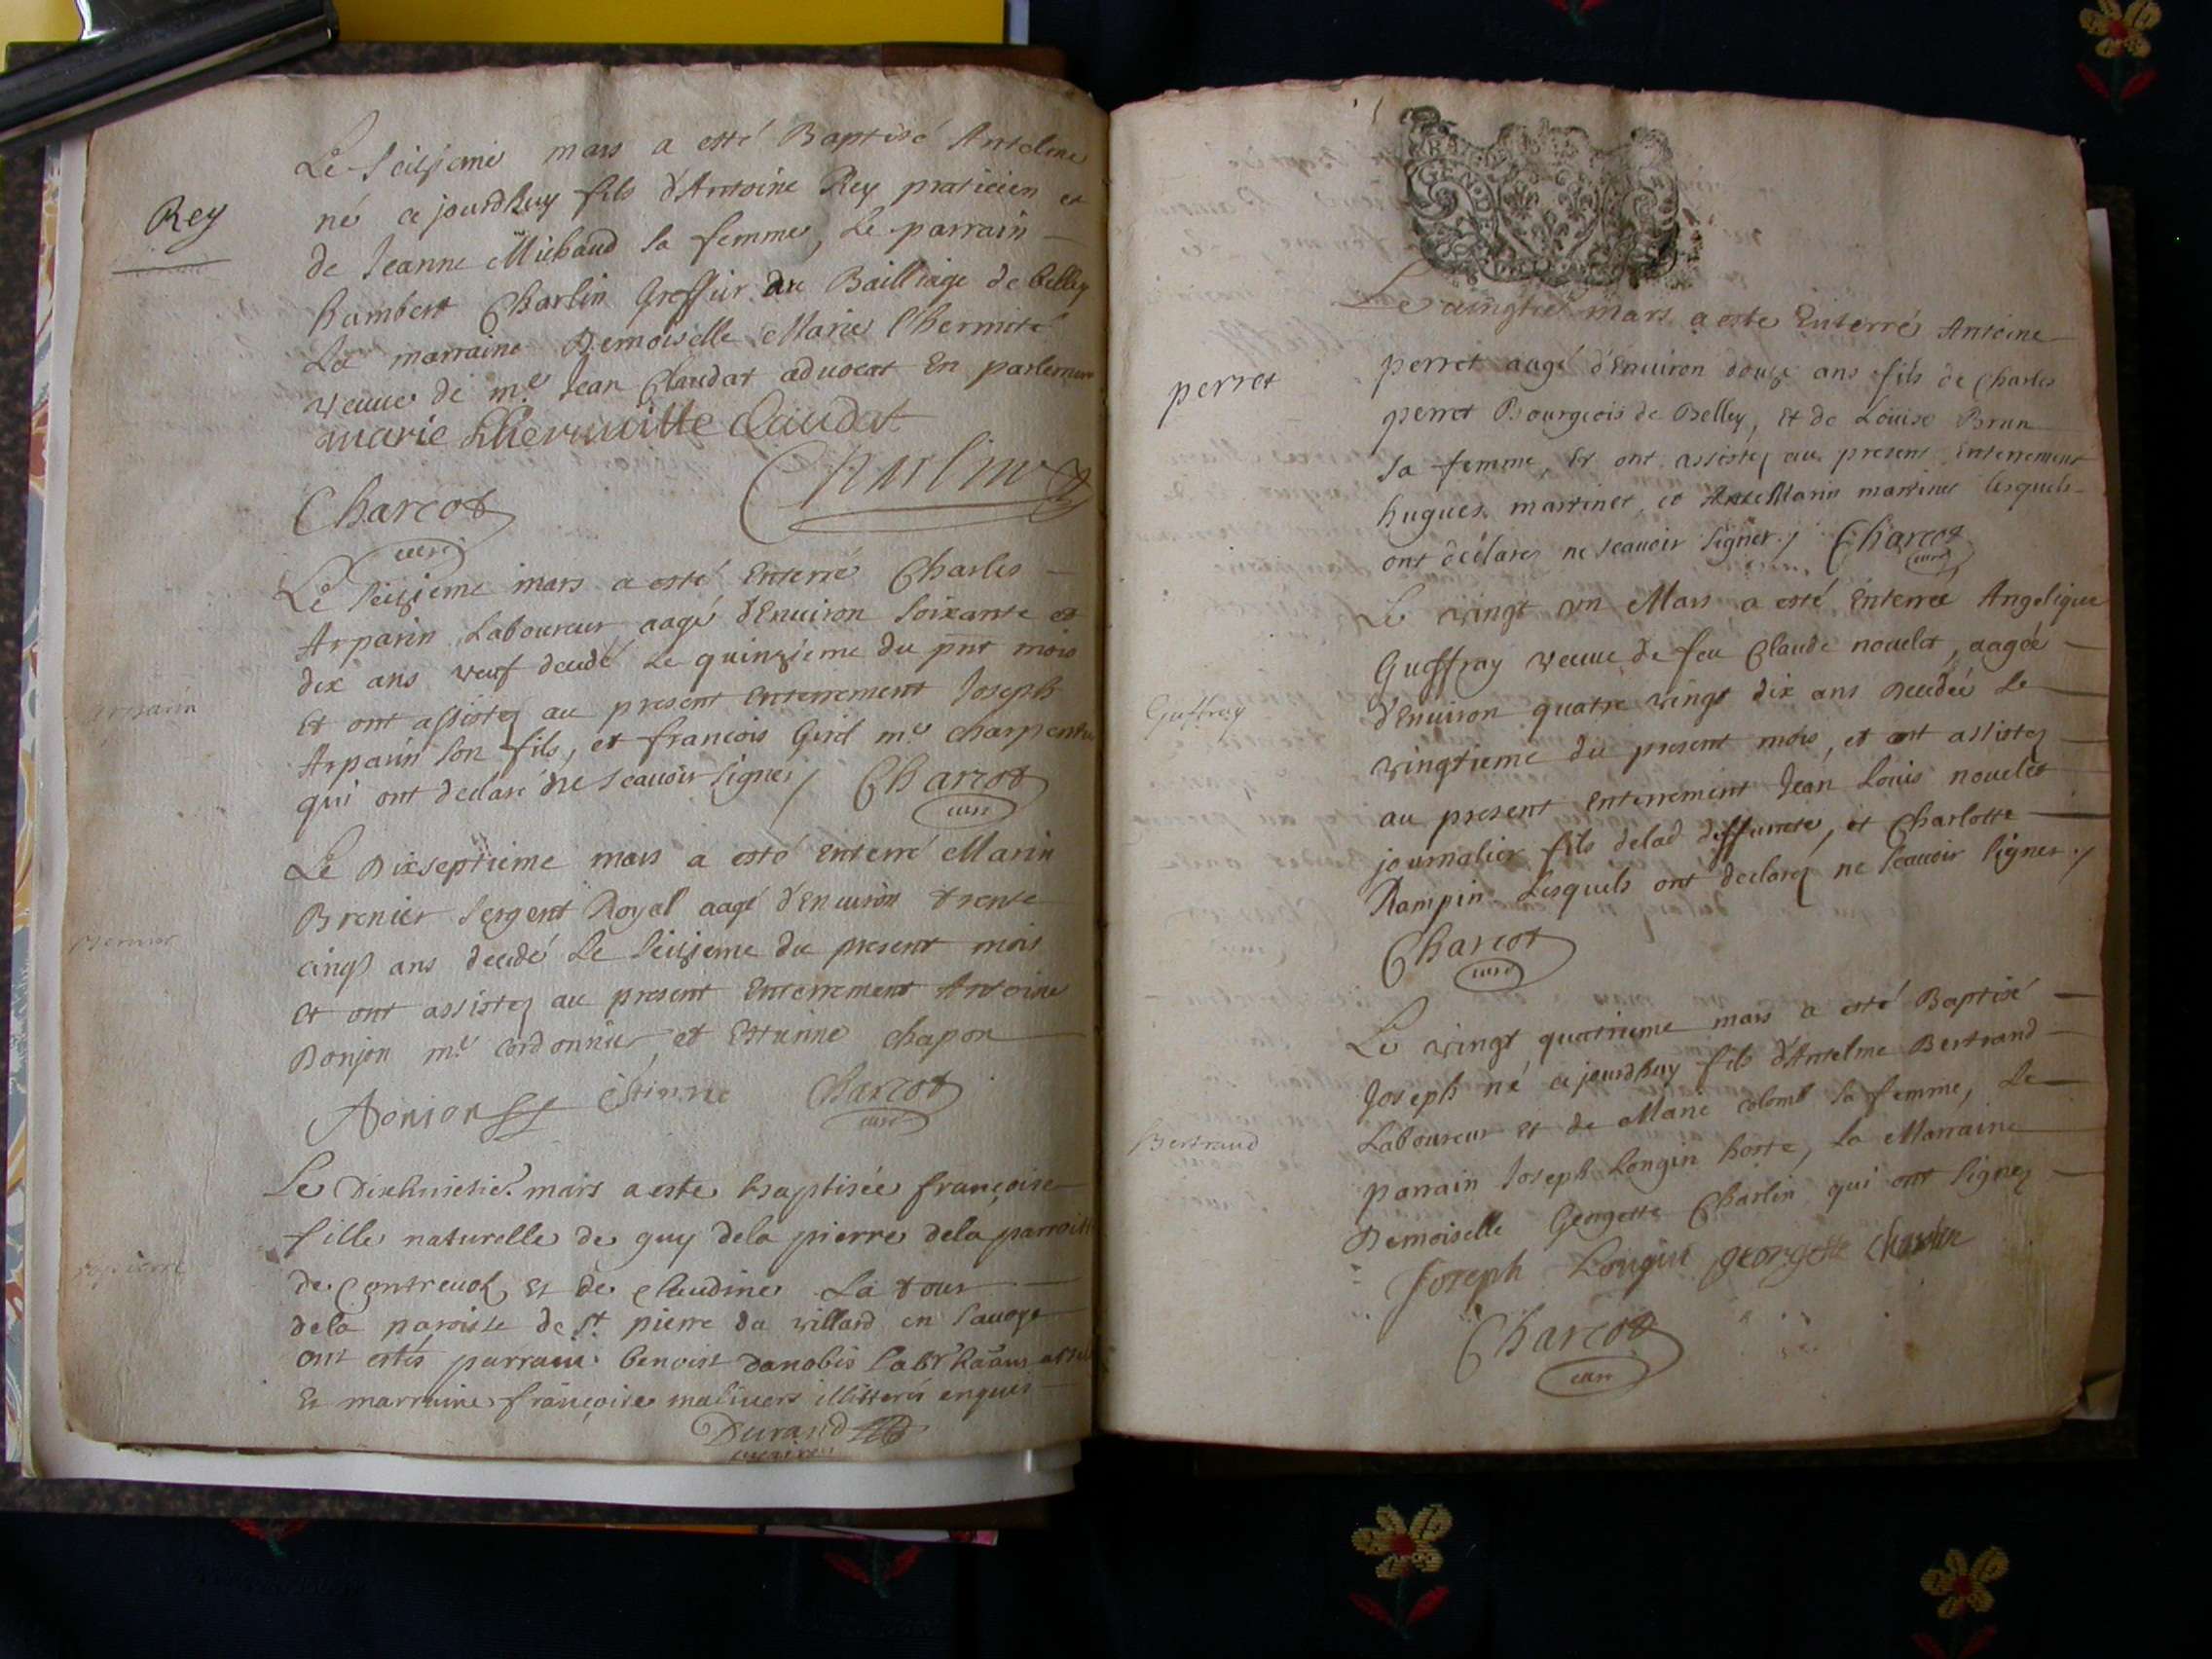 Rey
Le seizieme mars a esté Baptisé Antelme
né ce jourdhuy fils d'Antoine Rey praticien et
de Jeanne Michaud sa femme, Le parrain
humbert Charlin Greffier au Bailliage de belley
La marraine Demoiselle Marie l'hermite
veuve de me. Jean Claudat advocat En parlement
marie Lhermitte Claudat
Charlin
Charcot
curé
Le seizieme mars a esté Enterré Charles
Arparin Laboureur aagé d'Enuiron soixante et
dix ans veuf decedé Le quinzieme du pnt mois
Et ont assistez au present Enterrement Joseph
Arparin son fils, et francois Girel me. charpentier
qui ont declaré ne scauoir signer / Charcot
curé
Arparin
Le Dixseptieme mars a esté Enterré Marin
Brenier sergent Royal aagé d'Enuiron trente
cinq ans decedé Le seizieme du present mois
Et ont assistez au present Enterrement Antoine
Donjon me. cordonnier, et Estienne chapon
Donion Etienne Charcot
curé
Brenier
Le Dixhuictie. mars a este Baptisée françoise
fille naturelle de guy dela pierre dela parroisse
de Contrevoz Et de claudine La tour
dela paroisse de st. pierre du villard en sauoye
ont estés parrain benoist danobis
Et marraine françoise maliuers illitterés enquis
Durand
vicaire
lapierre
GEN
Le vingtie mars a este Enterré Antoine
perret aagé d'Enuiron douze ans fils de Charles
perret Bourgeois de Belley, et de Louise Brun
sa femme, Et ont assistez au present Enterrement
hugues martinet, et Anne Marin martinet lesquels
ont déclarez ne scauoir signer / Charcot
curé
perret
Le vingt un Mars a esté Enterrée Angelique
Guffray veuve de feu Claude nouelet, aagée
d'Enuiron quatre vingt dix ans decedée Le
vingtieme du present mois, et ont assistez
au present Enterrement Jean Louis nouelet
journalier fils delad deffuncte, et Charlotte
Rampin Lesquels ont declarez ne scauoir signer /
Charcot
curé
Guffray
Le vingt quatrieme mars a esté Baptisé
Joseph né cejourdhuy fils d'Antelme Bertrand
Laboureur Et de Marie colomb sa femme, Le
parrain Joseph Longin hoste, La Marraine
Demoiselle Georgette Charlin qui ont signez
Joseph Longin georgette charlin
Charcot
curé
Bertrand